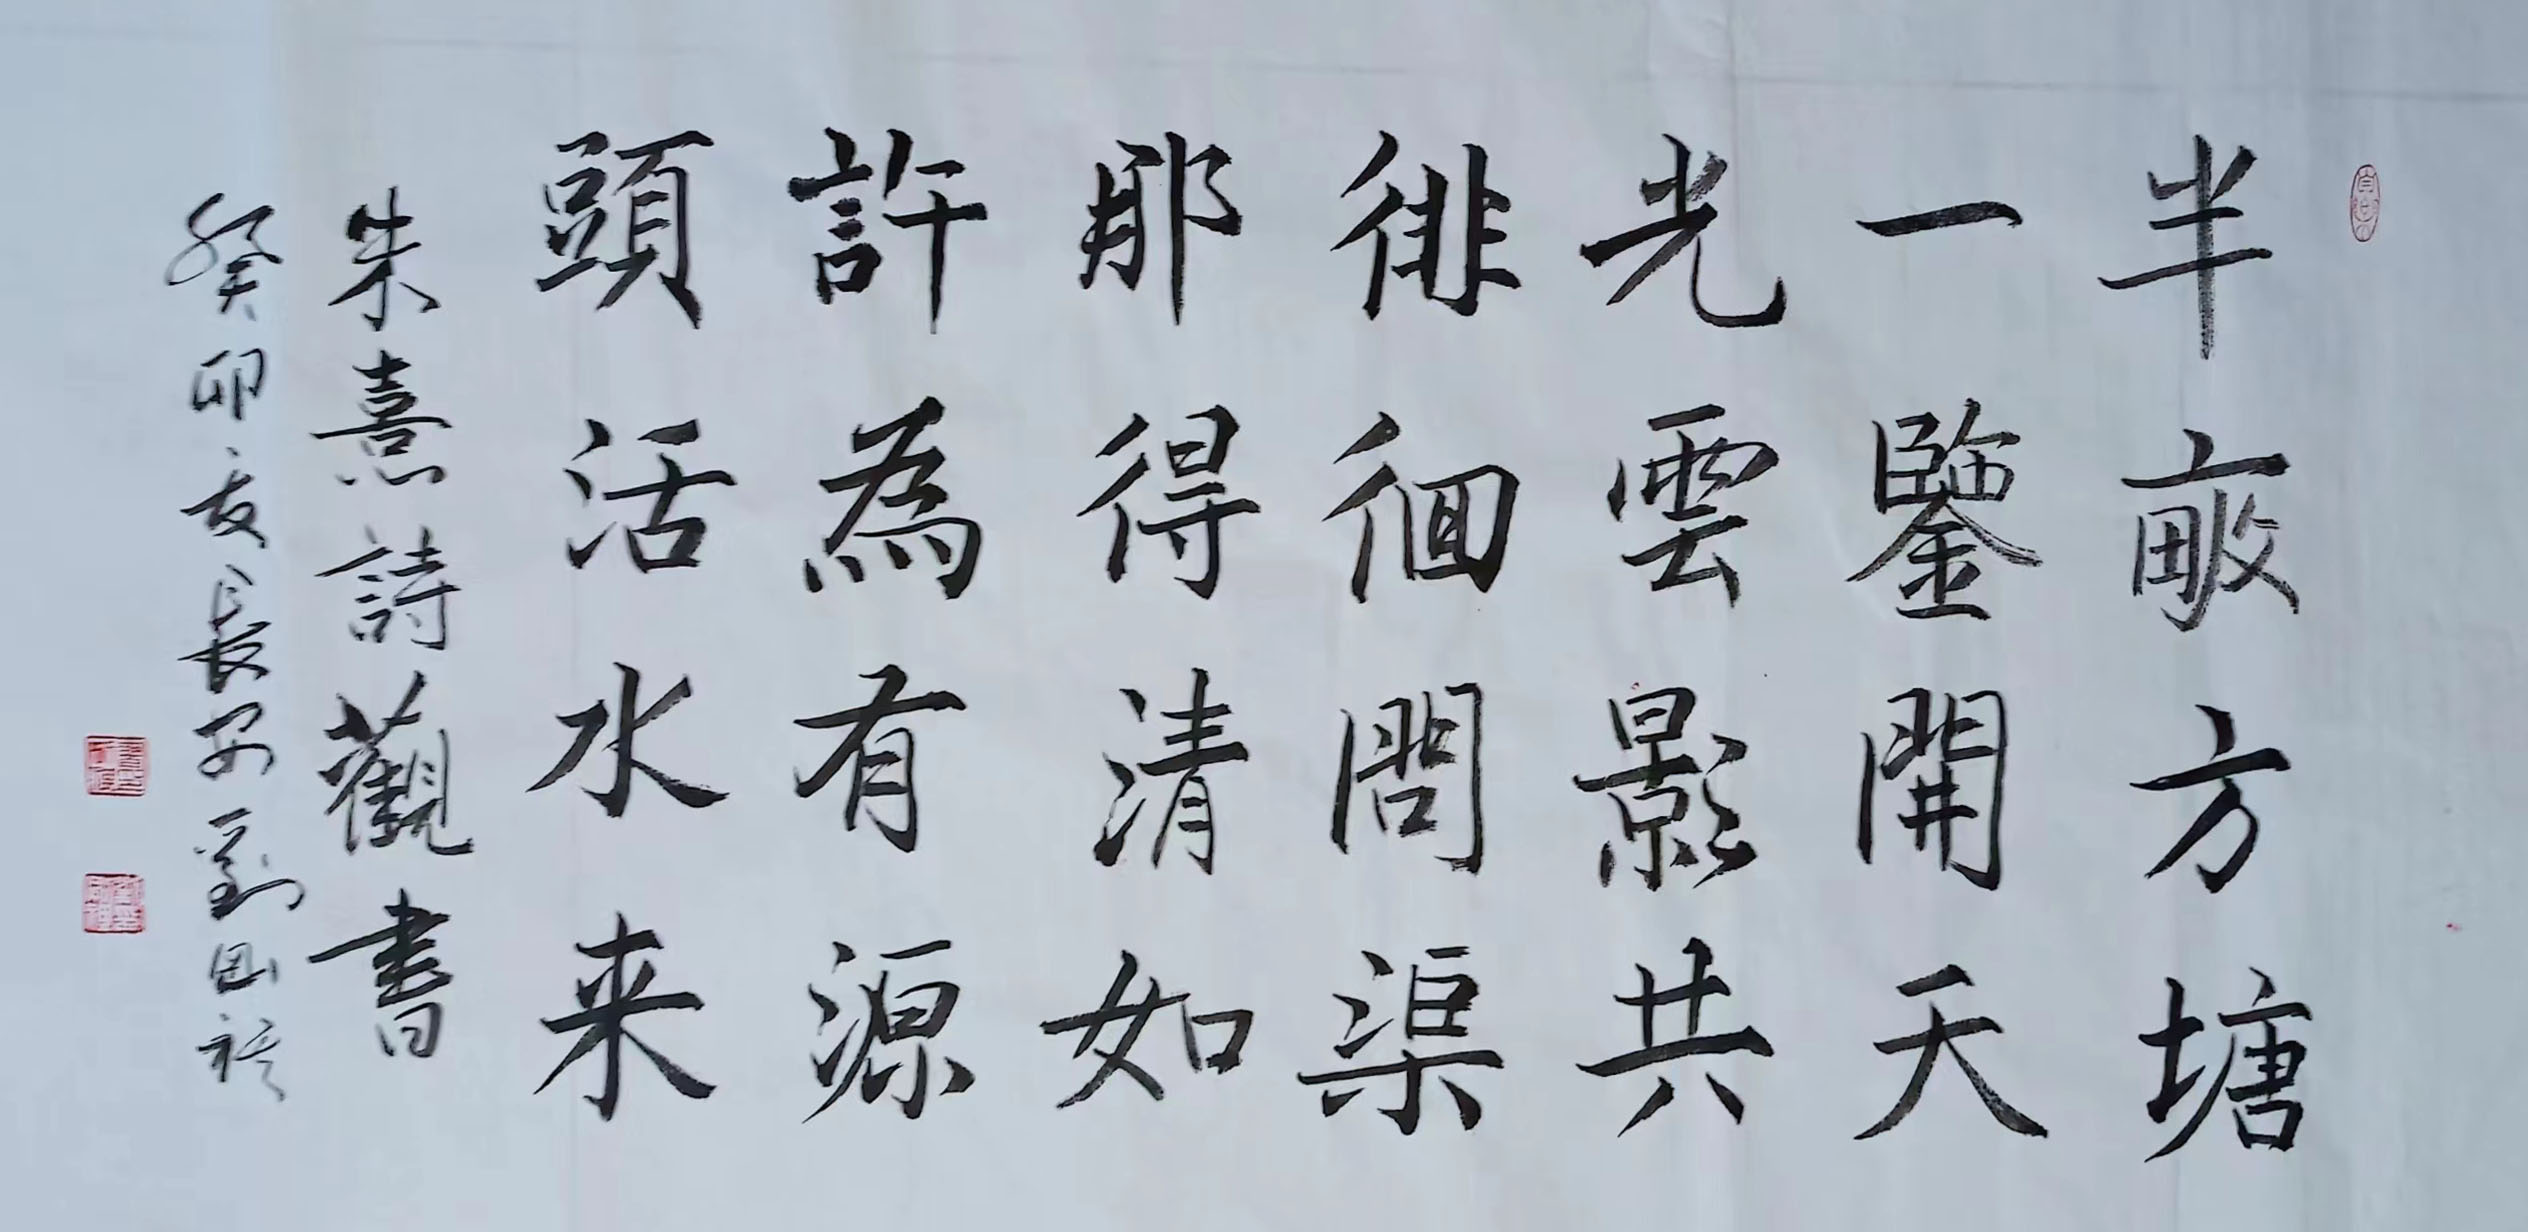 半畝方塘
一鑒開天
光雲影共
徘徊問渠
那得清如
許為有源
頭活水来
朱熹詩觀書
癸卯夏長安劉